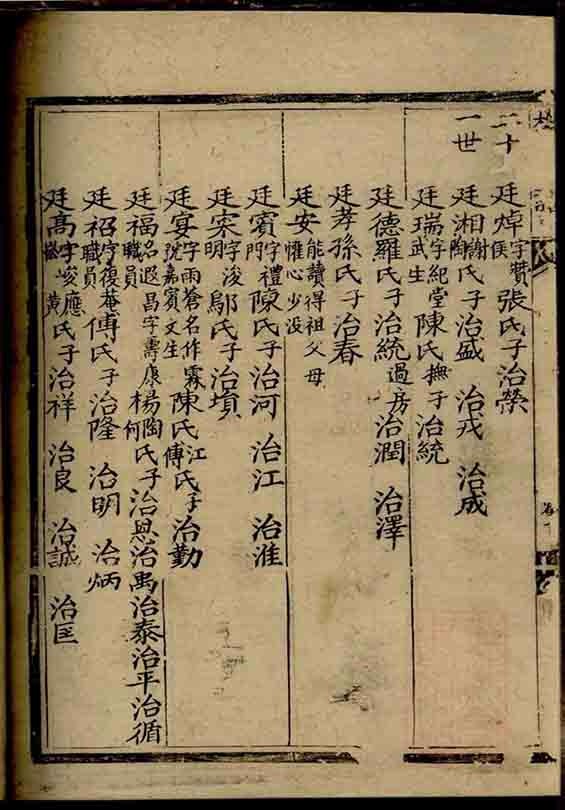 二十
一世
廷焯字贊侯張氏子治榮
廷湘謝陶氏子治盛 治戎 治成
廷瑞字紀堂武生陳氏撫子治統
廷德羅氏子治統過房治潤 治澤
廷孝孫氏子治春
廷安能讀得祖父母懽心少没
廷賓字禮門陳氏子治河 治江 治淮
廷宋字浚明鄔氏子治墳
廷宴字雨蒼名作霖號嘉賓文生陳氏江傅氏子治勤
廷福名遐昌字壽康職員楊陶何氏子治恩治禹治泰治平治循
廷祒字復菴職員傅氏子治隆 治明 治炳
廷高字峻應嵩黃氏子治祥 治良 治誠 治匡